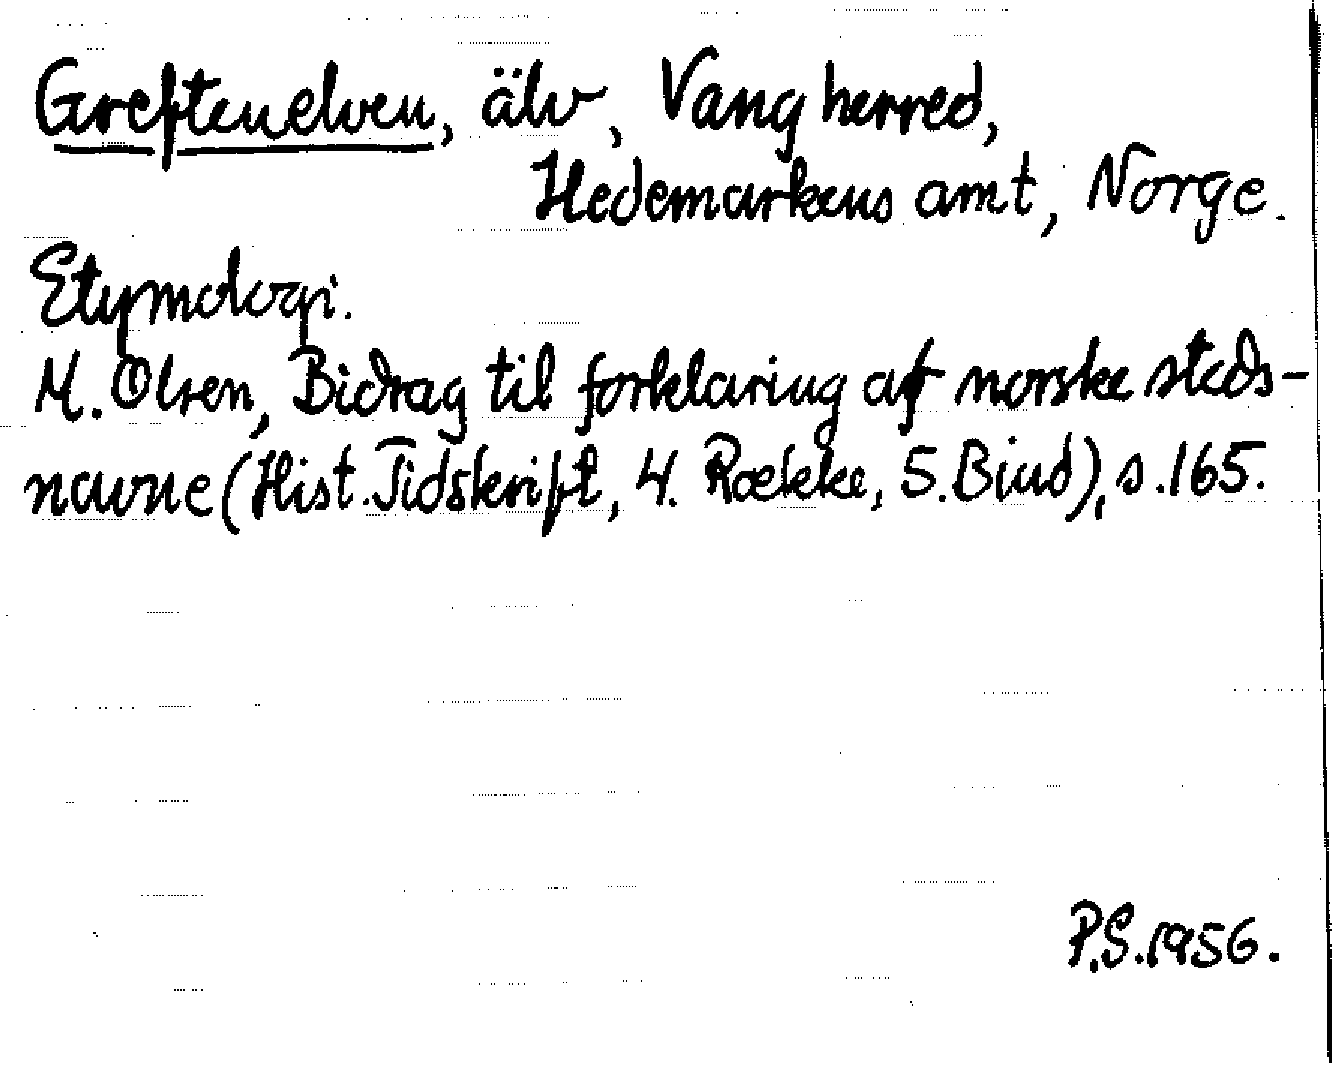 Greftenelven, älv, Vang herred,
Hedemarkens amt, Norge.
Etymologi.
M. Olsen, Bidrag til forklaring af norske steds-
navne (Hist. Tidskrift, 4. Række, 5. Bind), s. 165.
P.S. 1956.